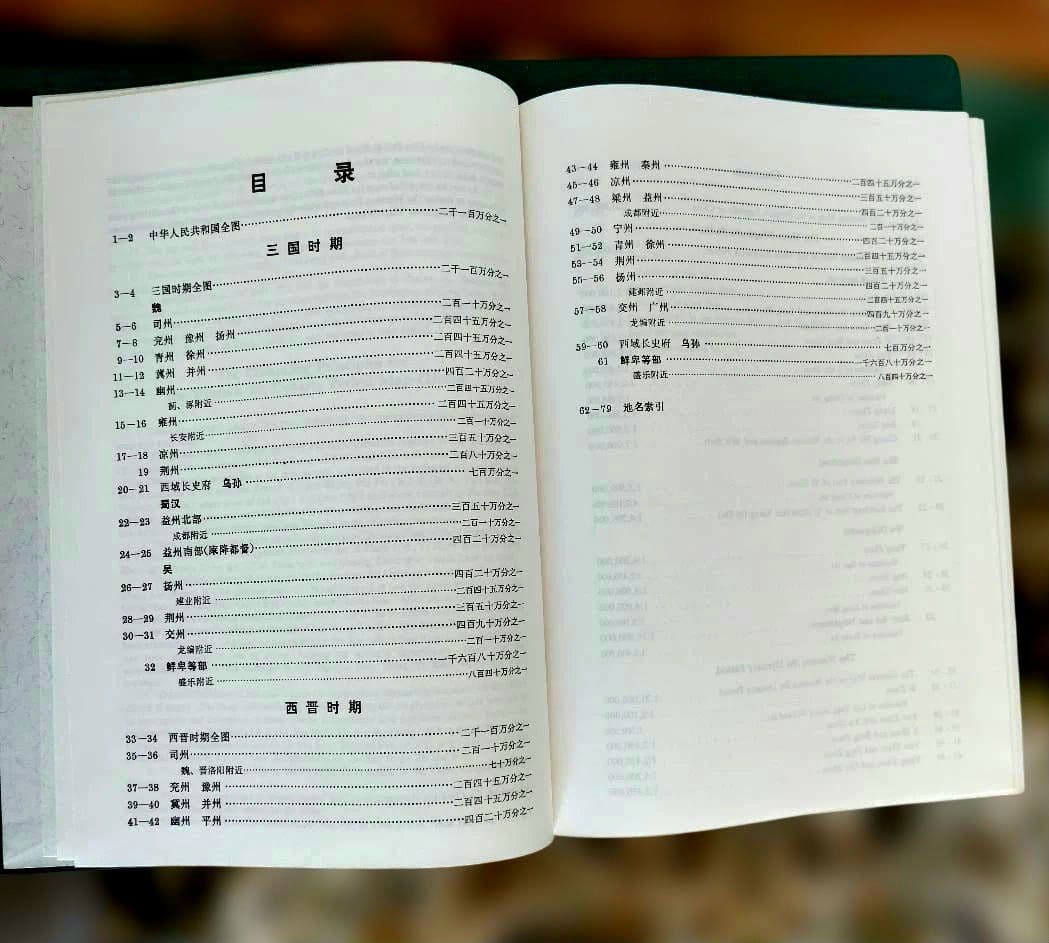 目 录
1—2 中华人民共和国全图……二千一百万分之一
三国时期
3—4 三国时期全图……二千一百万分之一
魏
5—6 司州……二百一十万分之一
7—8 兖州 豫州 扬州……二百四十五万分之一
9—10 青州 徐州……二百四十五万分之一
11—12 冀州 并州……二百四十五万分之一
13—14 幽州……四百二十万分之一
蓟、涿附近……二百四十五万分之一
15—16 雍州……二百四十五万分之一
长安附近……二百一十万分之一
17—18 凉州……三百五十万分之一
19 荆州……二百八十万分之一
20—21 西域长史府 乌孙……七百万分之一
蜀汉
22—23 益州北部……三百五十万分之一
成都附近……二百一十万分之一
24—25 益州南部(庲降都督)……四百二十万分之一
吴
26—27 扬州……四百二十万分之一
建业附近……二百四十五万分之一
28—29 荆州……三百五十万分之一
30—31 交州……四百九十万分之一
龙编附近……二百一十万分之一
32 鲜卑等部……一千六百八十万分之一
盛乐附近……八百四十万分之一
西晋时期
33—34 西晋时期全图……二千一百万分之一
35—36 司州……二百一十万分之一
魏、晋洛阳附近……七十万分之一
37—38 兖州 豫州……二百四十五万分之一
39—40 冀州 并州……二百四十五万分之一
41—42 幽州 平州……四百二十万分之一
43—44 雍州 秦州……二百四十五万分之一
45—46 凉州……三百五十万分之一
47—48 梁州 益州……四百二十万分之一
成都附近……二百一十万分之一
49—50 宁州……四百二十万分之一
51—52 青州 徐州……二百四十五万分之一
53—54 荆州……三百五十万分之一
55—56 扬州……四百二十万分之一
建邺附近……二百四十五万分之一
57—58 交州 广州……四百九十万分之一
龙编附近……二百一十万分之一
59—60 西域长史府 乌孙……七百万分之一
61 鲜卑等部……一千六百八十万分之一
盛乐附近……八百四十万分之一
62—79 地名索引